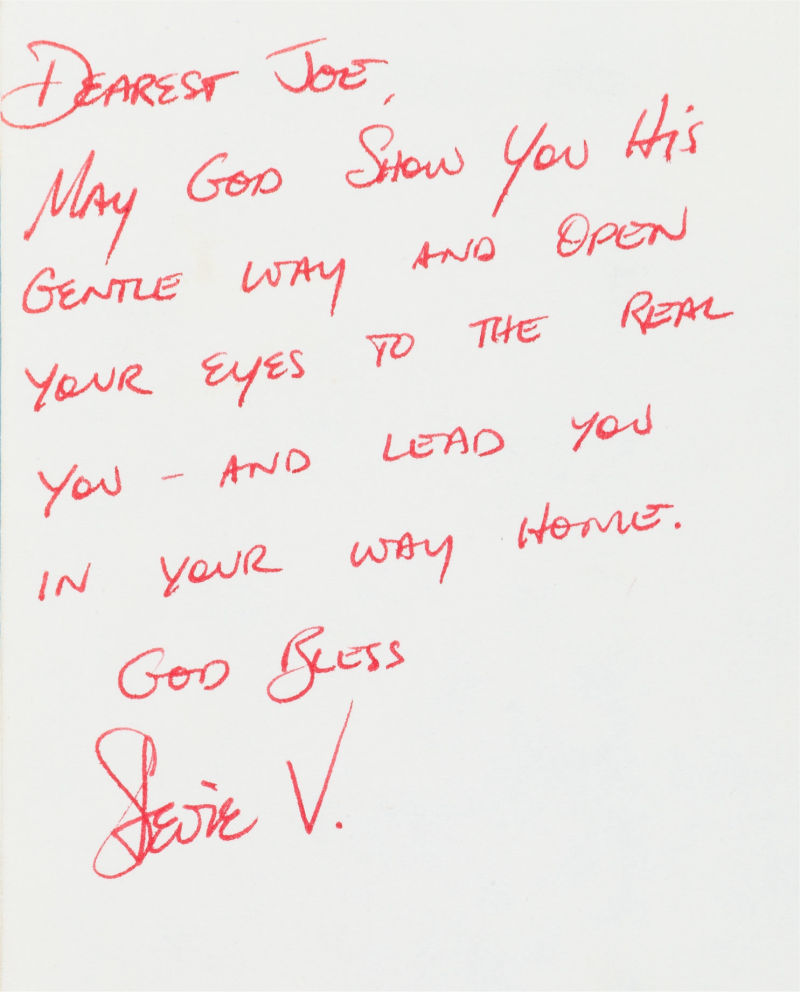 Dearest Joe,
May God Show You His
Gentle way and open
your eyes to the real
you – and lead you
in your way home.
God Bless
Stevie V.